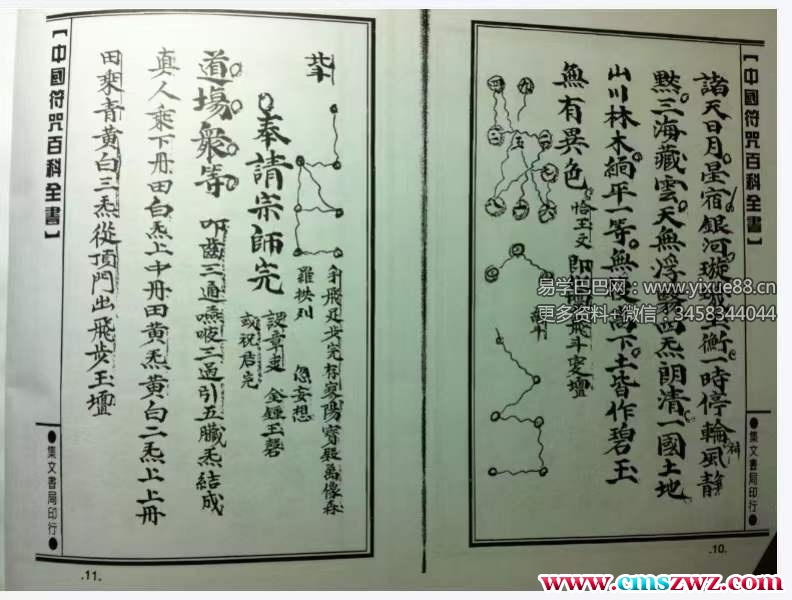 【中國符咒百科全書】
諸天日月星宿銀河璇璣玉衡一時停輪風静
黙三海藏雲天無浮翳四炁朗清一國土地
山川林木緬平一等無復高下土皆作碧玉
無有異色
恰玉文
飛斗变壇
●集文書局印行●
.10.
羅拱列
忽妄想
金鍾玉磬
奉請宗師完
道場衆等
叩齒三通嚥唾三過引五臟炁結成
真人乘下丹田白炁上中丹田黄炁黄白二炁上上丹
田乘青黄白三炁從頂門出飛步玉壇
【中國符咒百科全書】
●集文書局印行●
.11.
易学巴巴网：www.yixue88.cn
更多资料+微信：3458344044
www.cmszwz.com